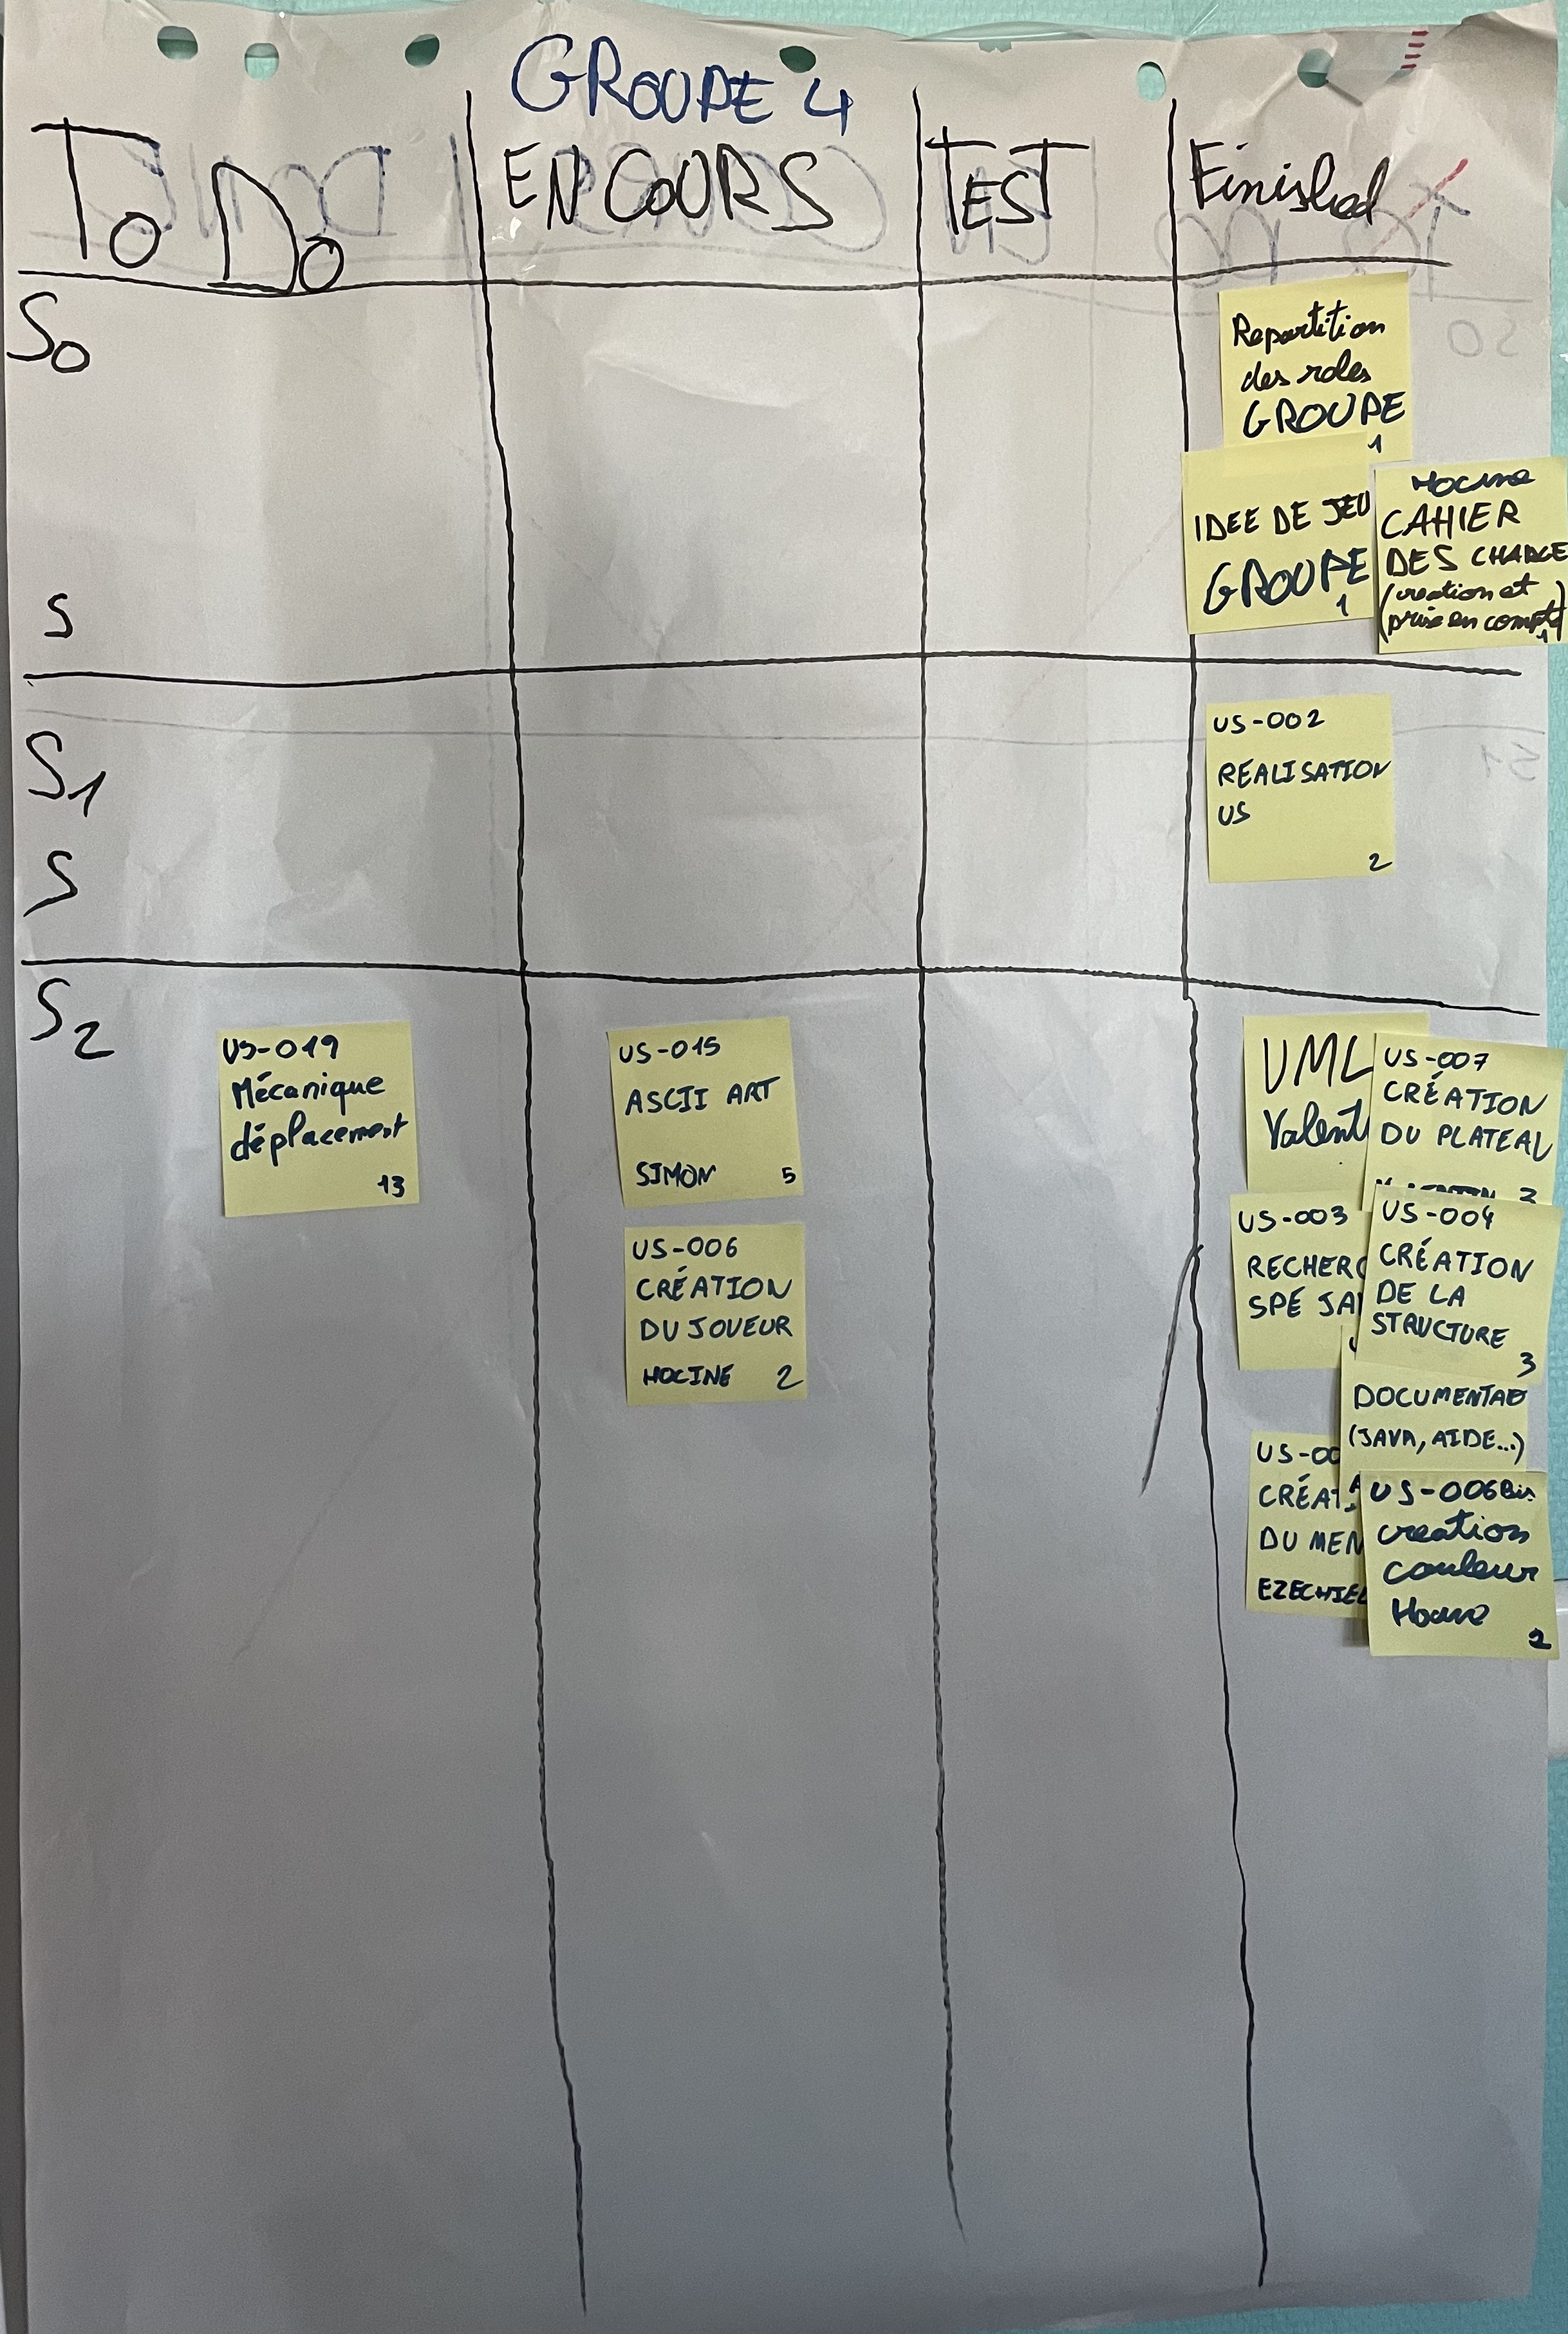 GROUPE 4
To Do
EN COURS
TEST
Finished
S0
Repartition
des roles
GROUPE
1
IDEE DE JEU
GROUPE
1
Hocine
CAHIER
DES CHARGE
(creation et
prise en compte)
1
S
S1
US-002
REALISATION
US
2
S
S2
US-019
Mécanique
déplacement
13
US-015
ASCII ART
SIMON 5
US-006
CRÉATION
DU JOUEUR
HOCINE 2
UML
Valent
US-007
CRÉATION
DU PLATEAU
3
US-003
RECHERC
SPÉ JA
US-004
CRÉATION
DE LA
STRUCTURE
3
DOCUMENTAO
(JAVA, AIDE...)
US-00
CRÉAT
DU MEN
EZECHIEL
US-006Bis
creation
couleur
Hocine
2